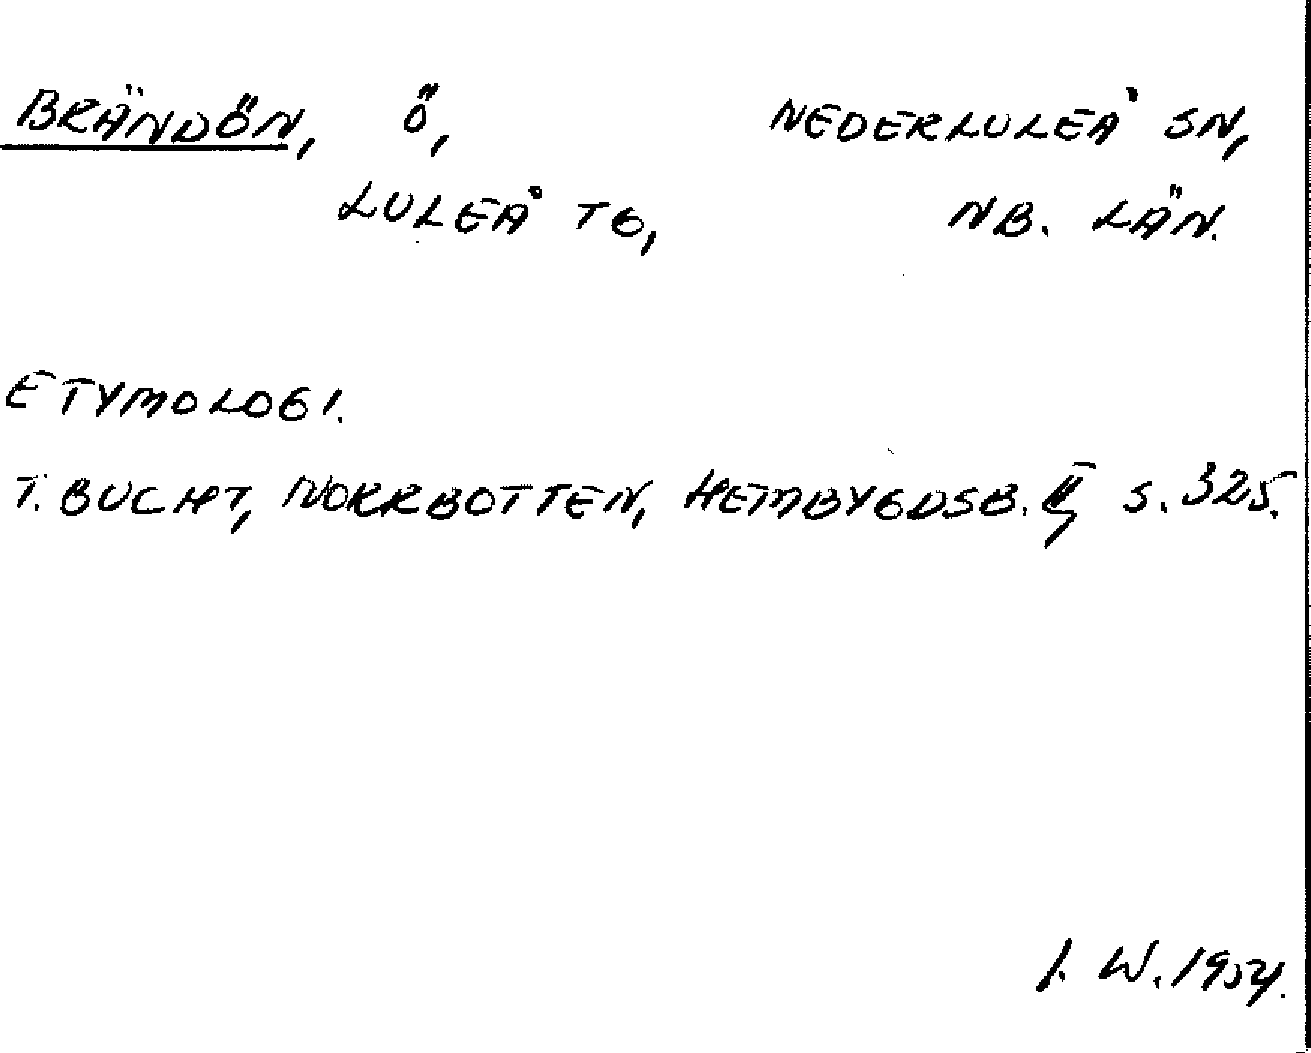 BRÄNDÖN, Ö, NEDERLULEÅ SN,
LULEÅ TG, NB. LÄN.
ETYMOLOGI.
T. BUCHT, NORRBOTTEN, HEMBYGDSB. II, S. 325.
I. W. 1954.